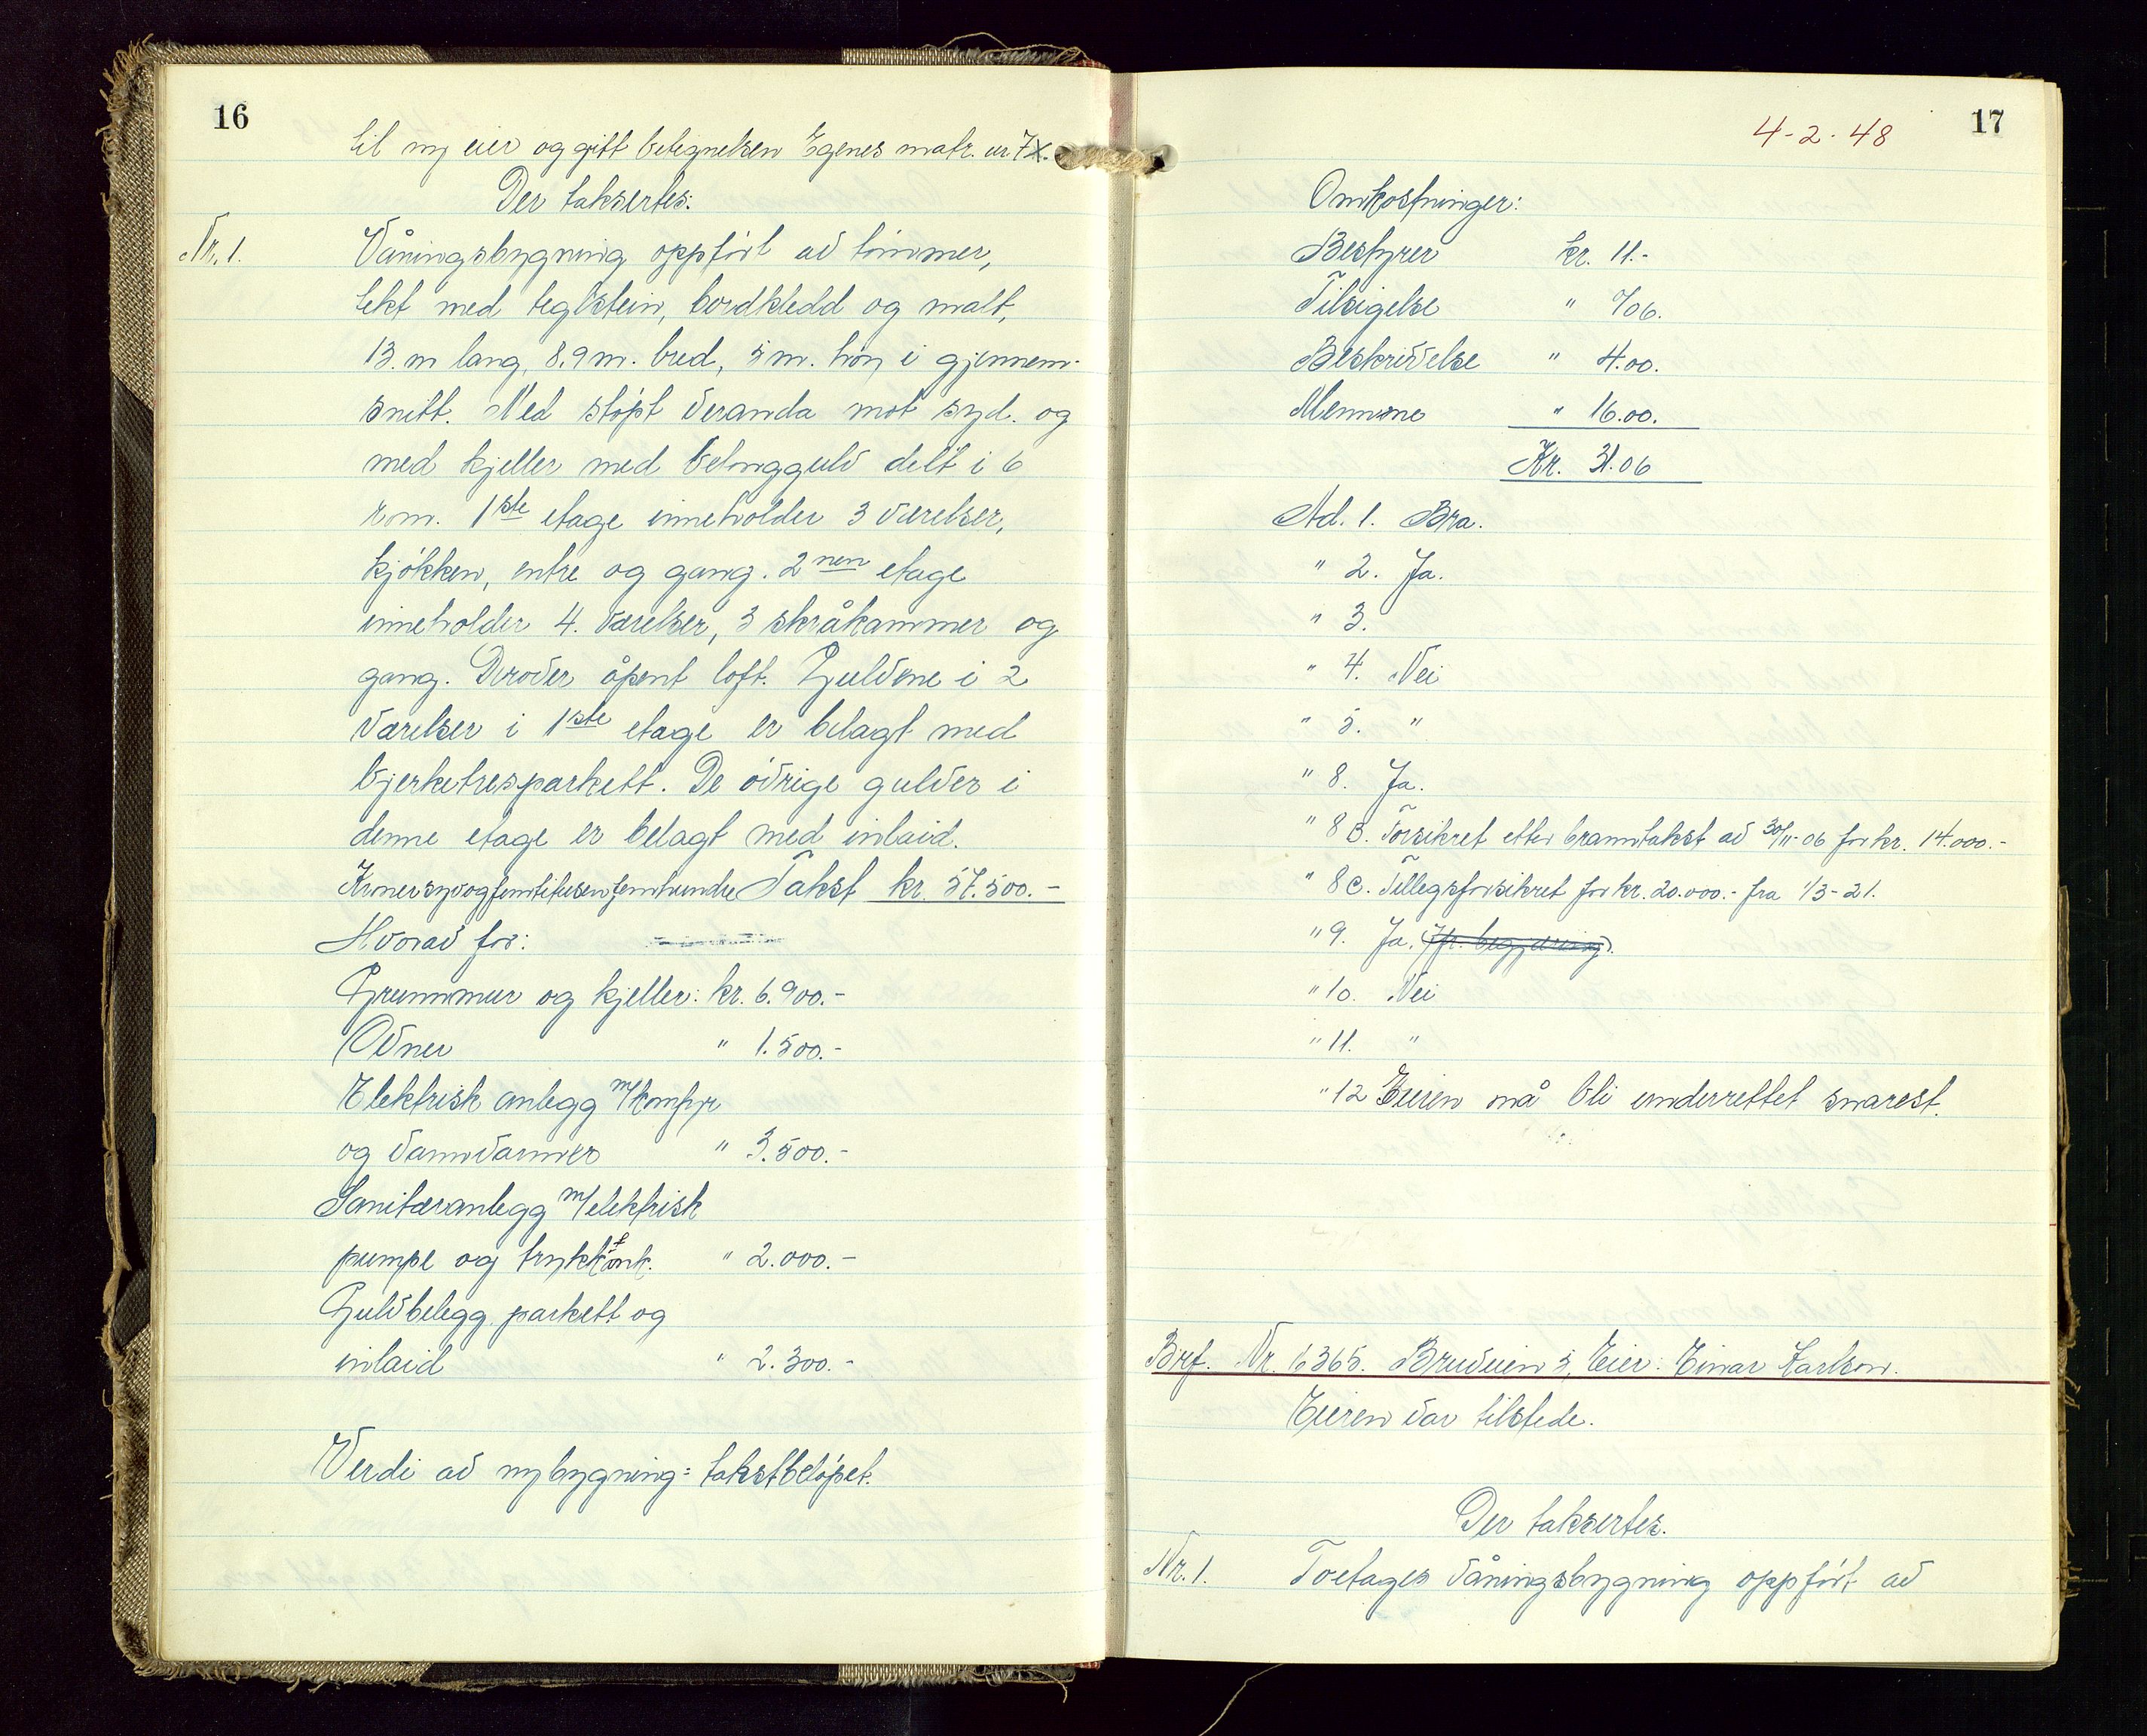 16
til ny eier og gitt betegnelsen Egenes matr. nr. 7x.
Der taksertes:
Nr. 1. Våningsbygning oppført av tømmer,
tekt med teglstein, bordkledd og malt,
13. m lang, 8.9 m. bred, 5 m. høy i gjennem-
snitt. Med støpt veranda mot syd. og
med kjeller med betonggulv delt i 6
rom. 1ste etage inneholder 3 værelser,
kjøkken, entre og gang. 2nen etage
inneholder 4. værelser, 3 skråkammer og
gang. Derover åpent loft. Gulvene i 2
værelser i 1ste etage er belagt med
bjerketresparkett. De øvrige gulver i
denne etage er belagt med inlaid.
Kroner syvogfemtitusenfemhundre Takst kr. 57.500.-
Hvorav for:
Grunnmur og kjeller: kr. 6.900.-
Ovner " 1.500.-
Elektrisk anlegg m/komfyr
og vannvarmer " 3.500.-
Sanitæranlegg m/elektrisk
pumpe og trykktank. " 2.000.-
Gulvbelegg, parkett og
inlaid " 2.300.-
Verdi av nybygning = takstbeløpet.
17
4-2-48
Omkostninger:
Bestyrer kr. 11.-
Tilsigelse " 0/06.
Beskrivelse " 4.00.
Mennene " 16.00.
Kr. 31.06
Ad. 1. Bra.
" 2. Ja.
" 3.
" 4. Nei
" 5. "
" 8. Ja.
" 8 B. Forsikret etter branntakst av 30/11-06 for kr. 14.000.-
" 8 C. Tilleggsforsikret for kr. 20.000.- fra 1/3-21.
" 9. Ja. (Jfr. begjæring).
" 10. Nei
" 11. "
" 12 Eieren må bli underrettet snarest.
Brf. Nr. 1365. Bruveien 5, Eier: Einar Karlson.
Eieren var tilstede.
Der taksertes.
Nr. 1. Toetages våningsbygning oppført av